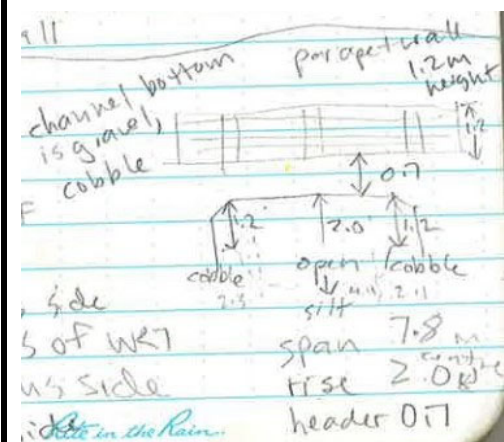 all
channel bottom
is gravel,
cobble
parapet wall
1.2m
height
1.2
0.7
1.2
2.0
1.2
cobble
open
cobble
2.3
silt
2.1
side
of WR7
us side
span 7.8 m
rise 2.0
header 0.7
Rite in the Rain.